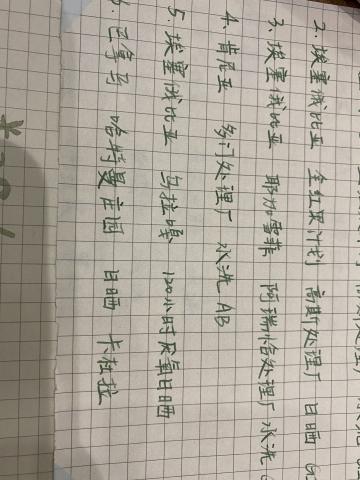 2. 埃塞俄比亚 全红果计划 高斯处理厂 日晒
3. 埃塞俄比亚 耶加雪菲 阿瑞恰处理厂 水洗
4. 肯尼亚 多门处理厂 水洗 AB
5. 埃塞俄比亚 乌拉嘎 120小时厌氧日晒
巴拿马 哈特曼庄园 日晒 卡杜拉